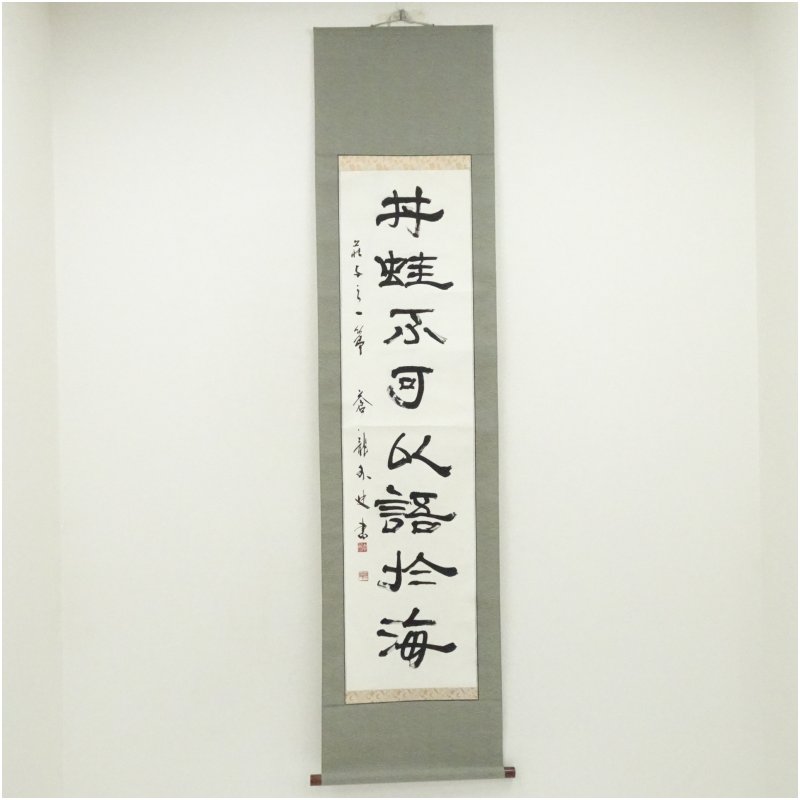 井蛙不可以語於海
荘子之一節 蒼龍 書